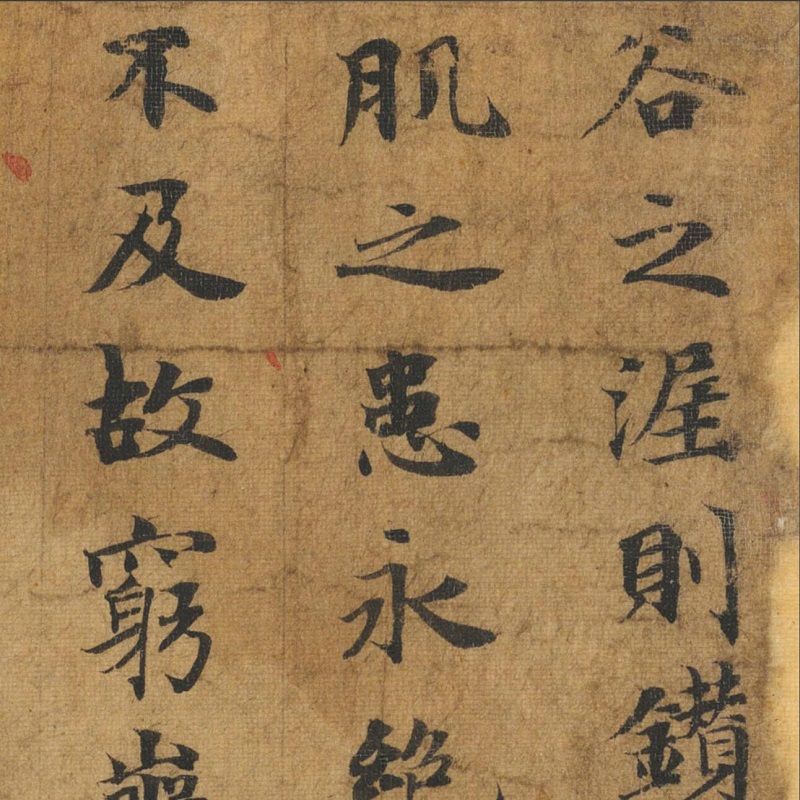 谷之涯則鑚
肌之患永絶
不及故窮